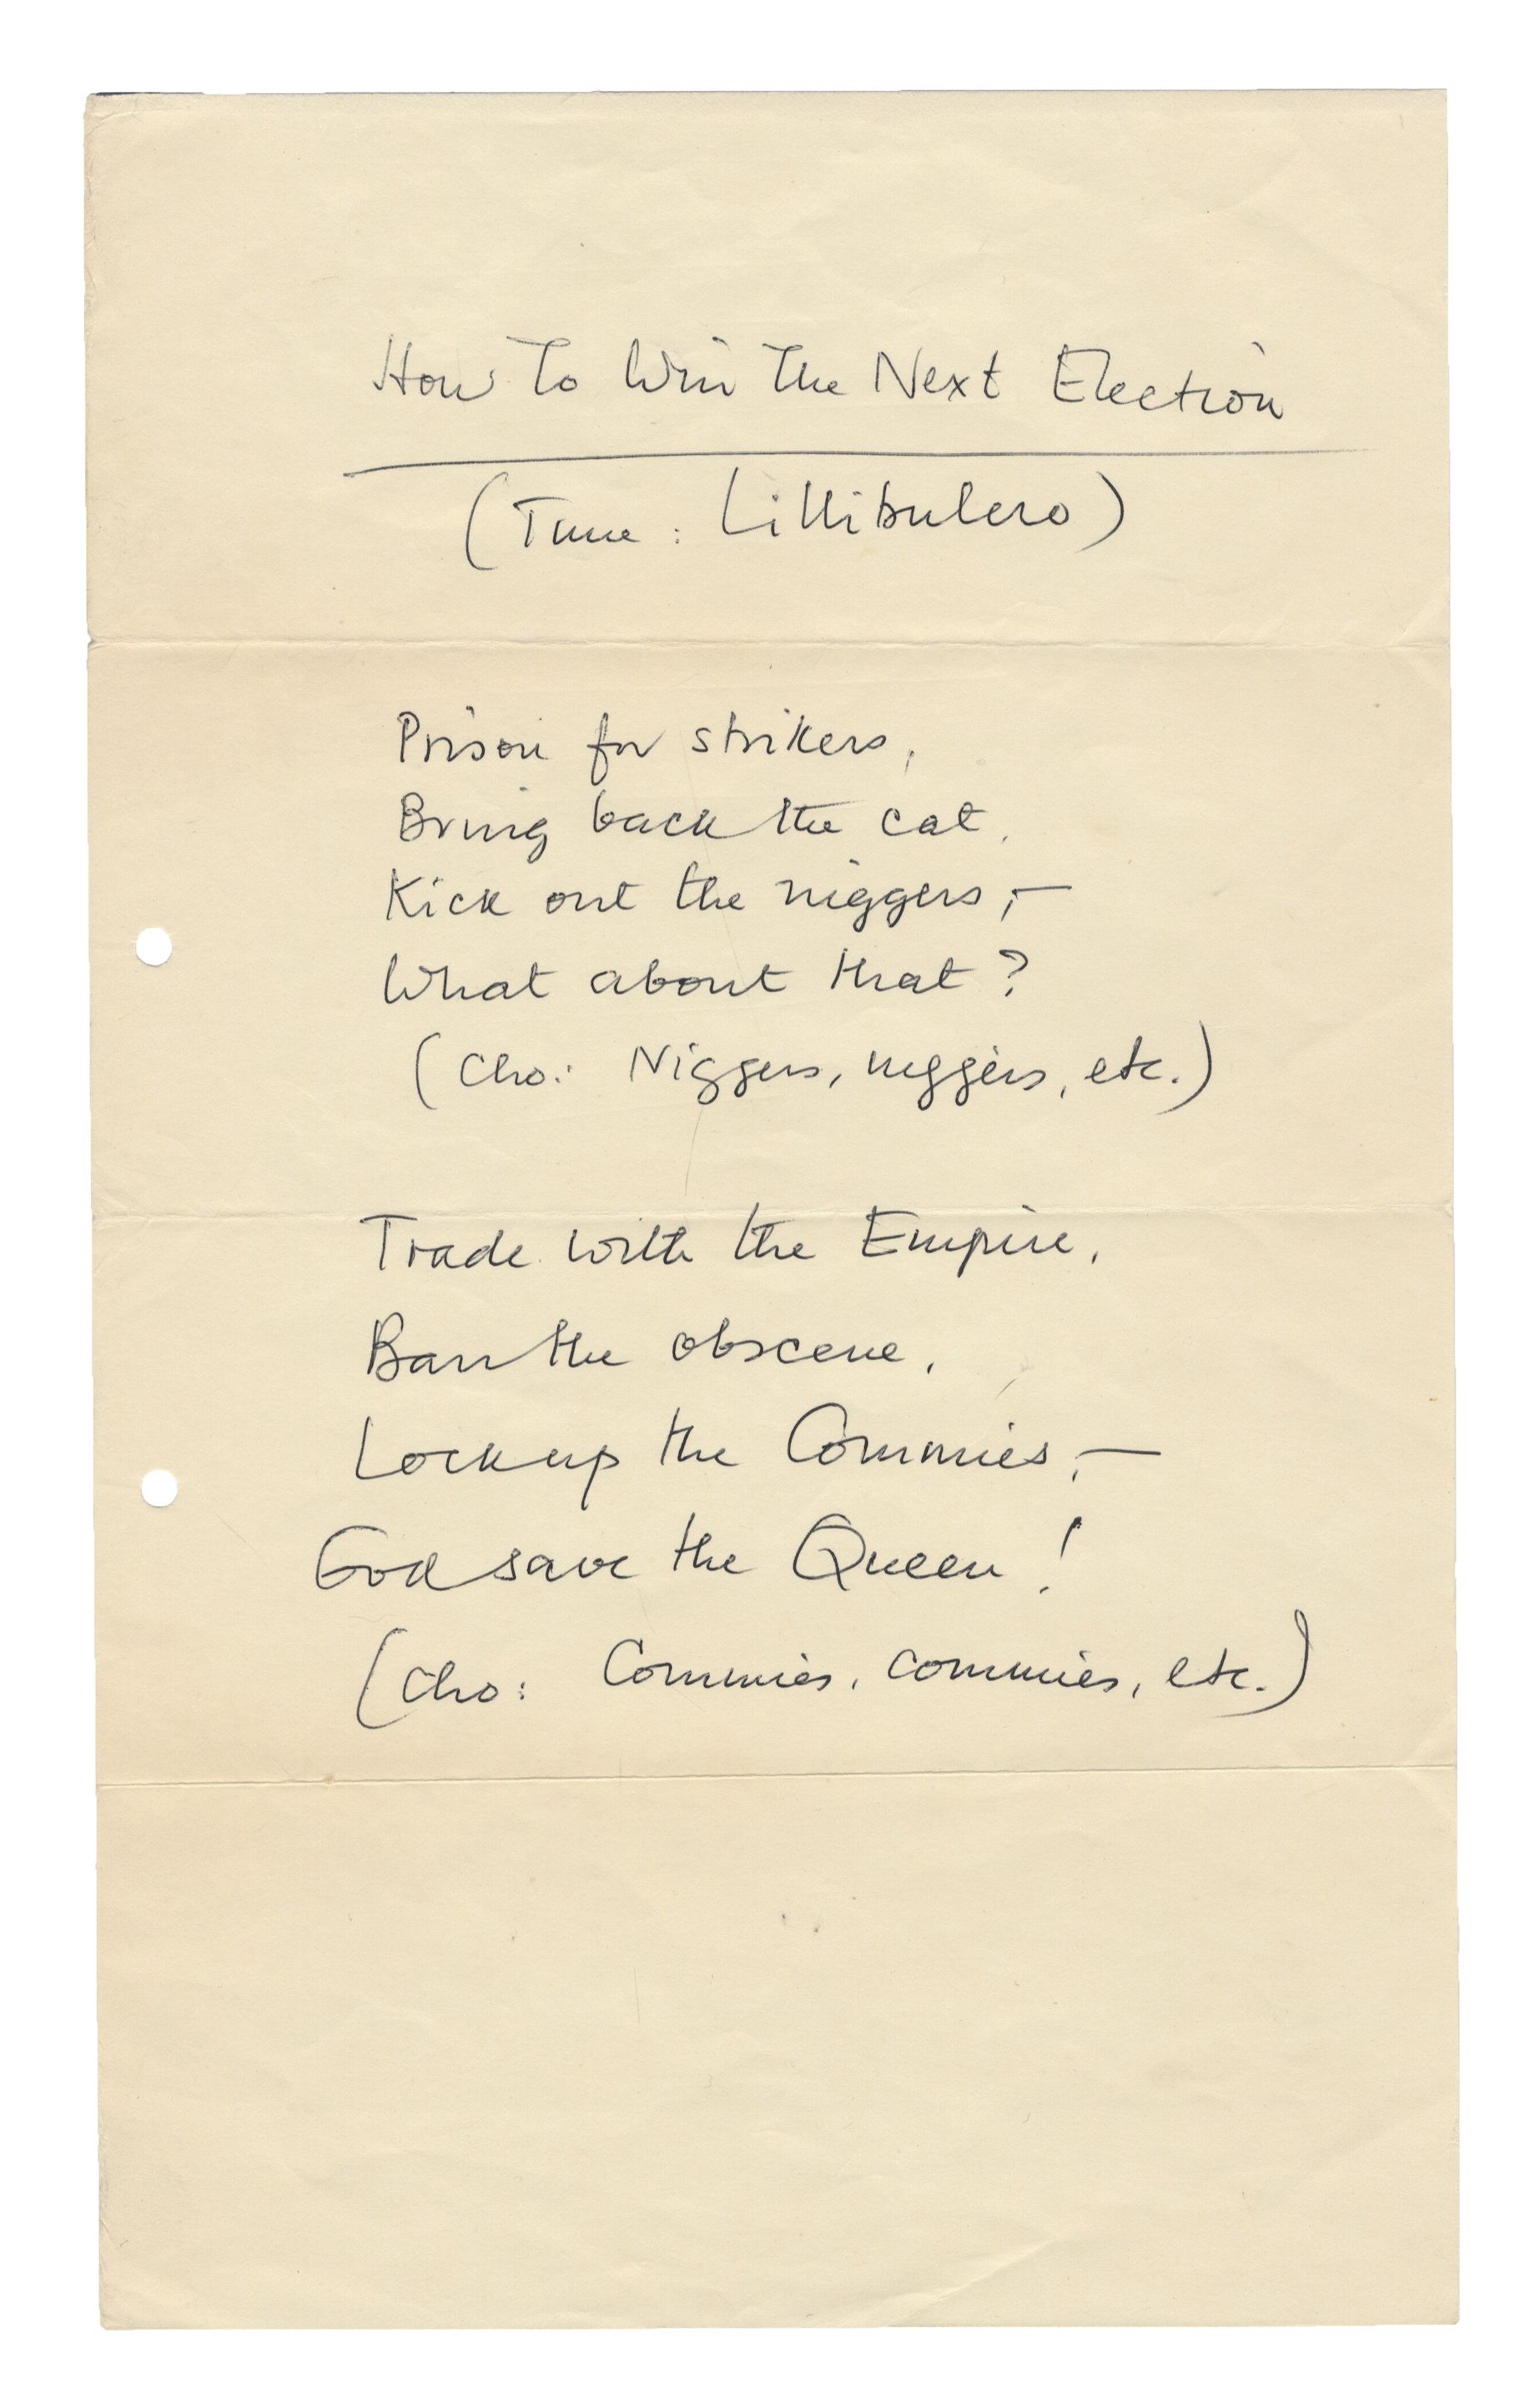 How To Win The Next Election
(Tune: Lillibulero)
Prison for strikers,
Bring back the cat,
Kick out the niggers, —
What about that?
(Cho: Niggers, niggers, etc.)
Trade with the Empire,
Ban the obscene,
Lock up the Commies, —
God save the Queen!
(Cho: Commies, commies, etc.)